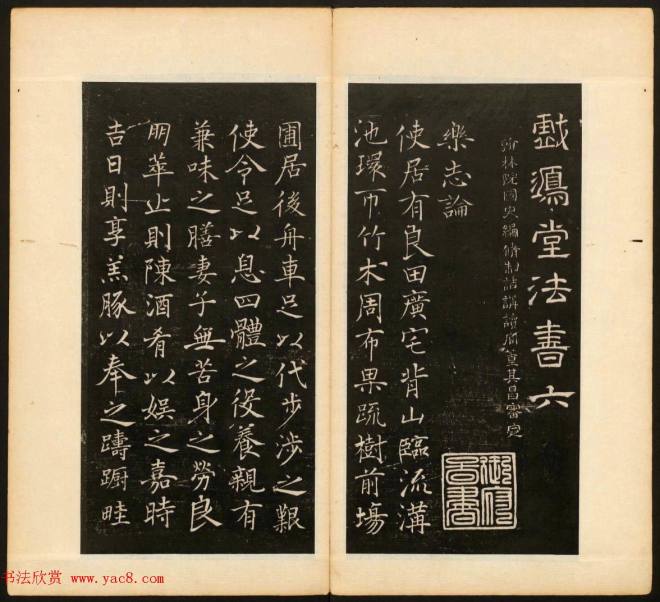 戲鴻堂法書六
翰林院國史編脩制誥講讀官董其昌審定
樂志論
使居有良田廣宅背山臨流溝
池環帀竹木周布果蔬樹前場
圃居後舟車足以代步涉之艱
使令足以息四體之役養親有
兼味之膳妻子無苦身之勞良
朋萃止則陳酒肴以娛之嘉時
吉日則享羔豚以奉之躊躕畦
书法欣赏 www.yac8.com